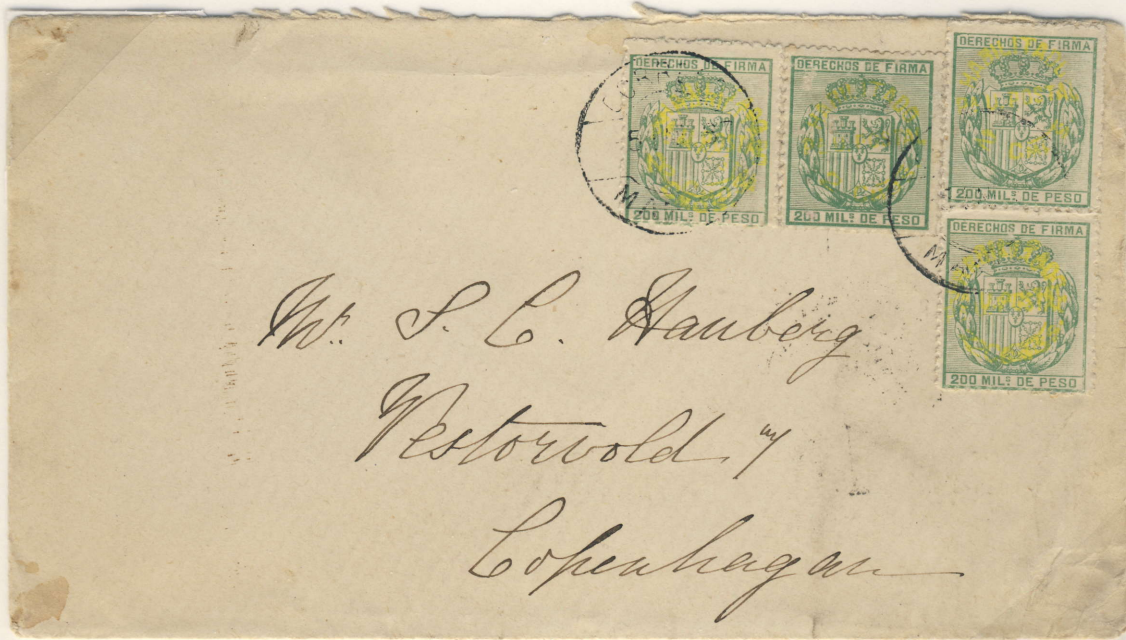 DERECHOS DE FIRMA
200 MIL.ˢ DE PESO
DERECHOS DE FIRMA
200 MIL.ˢ DE PESO
DERECHOS DE FIRMA
200 MIL.ˢ DE PESO
DERECHOS DE FIRMA
200 MIL.ˢ DE PESO
Mr. S. C. Hauberg
Vestorvold
Copenhagan